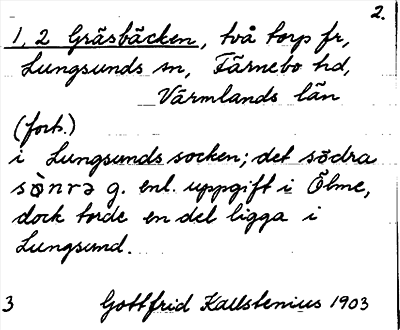 2.
1, 2 Gräsbäcken, två torp fr,
Lungsunds sn, Färnebo hd,
Värmlands län
(forts.)
i Lungsunds socken; det södra
g. enl. uppgift i Ölme,
dock torde en del ligga i
Lungsund.
3 Gottfrid Kallstenius 1903